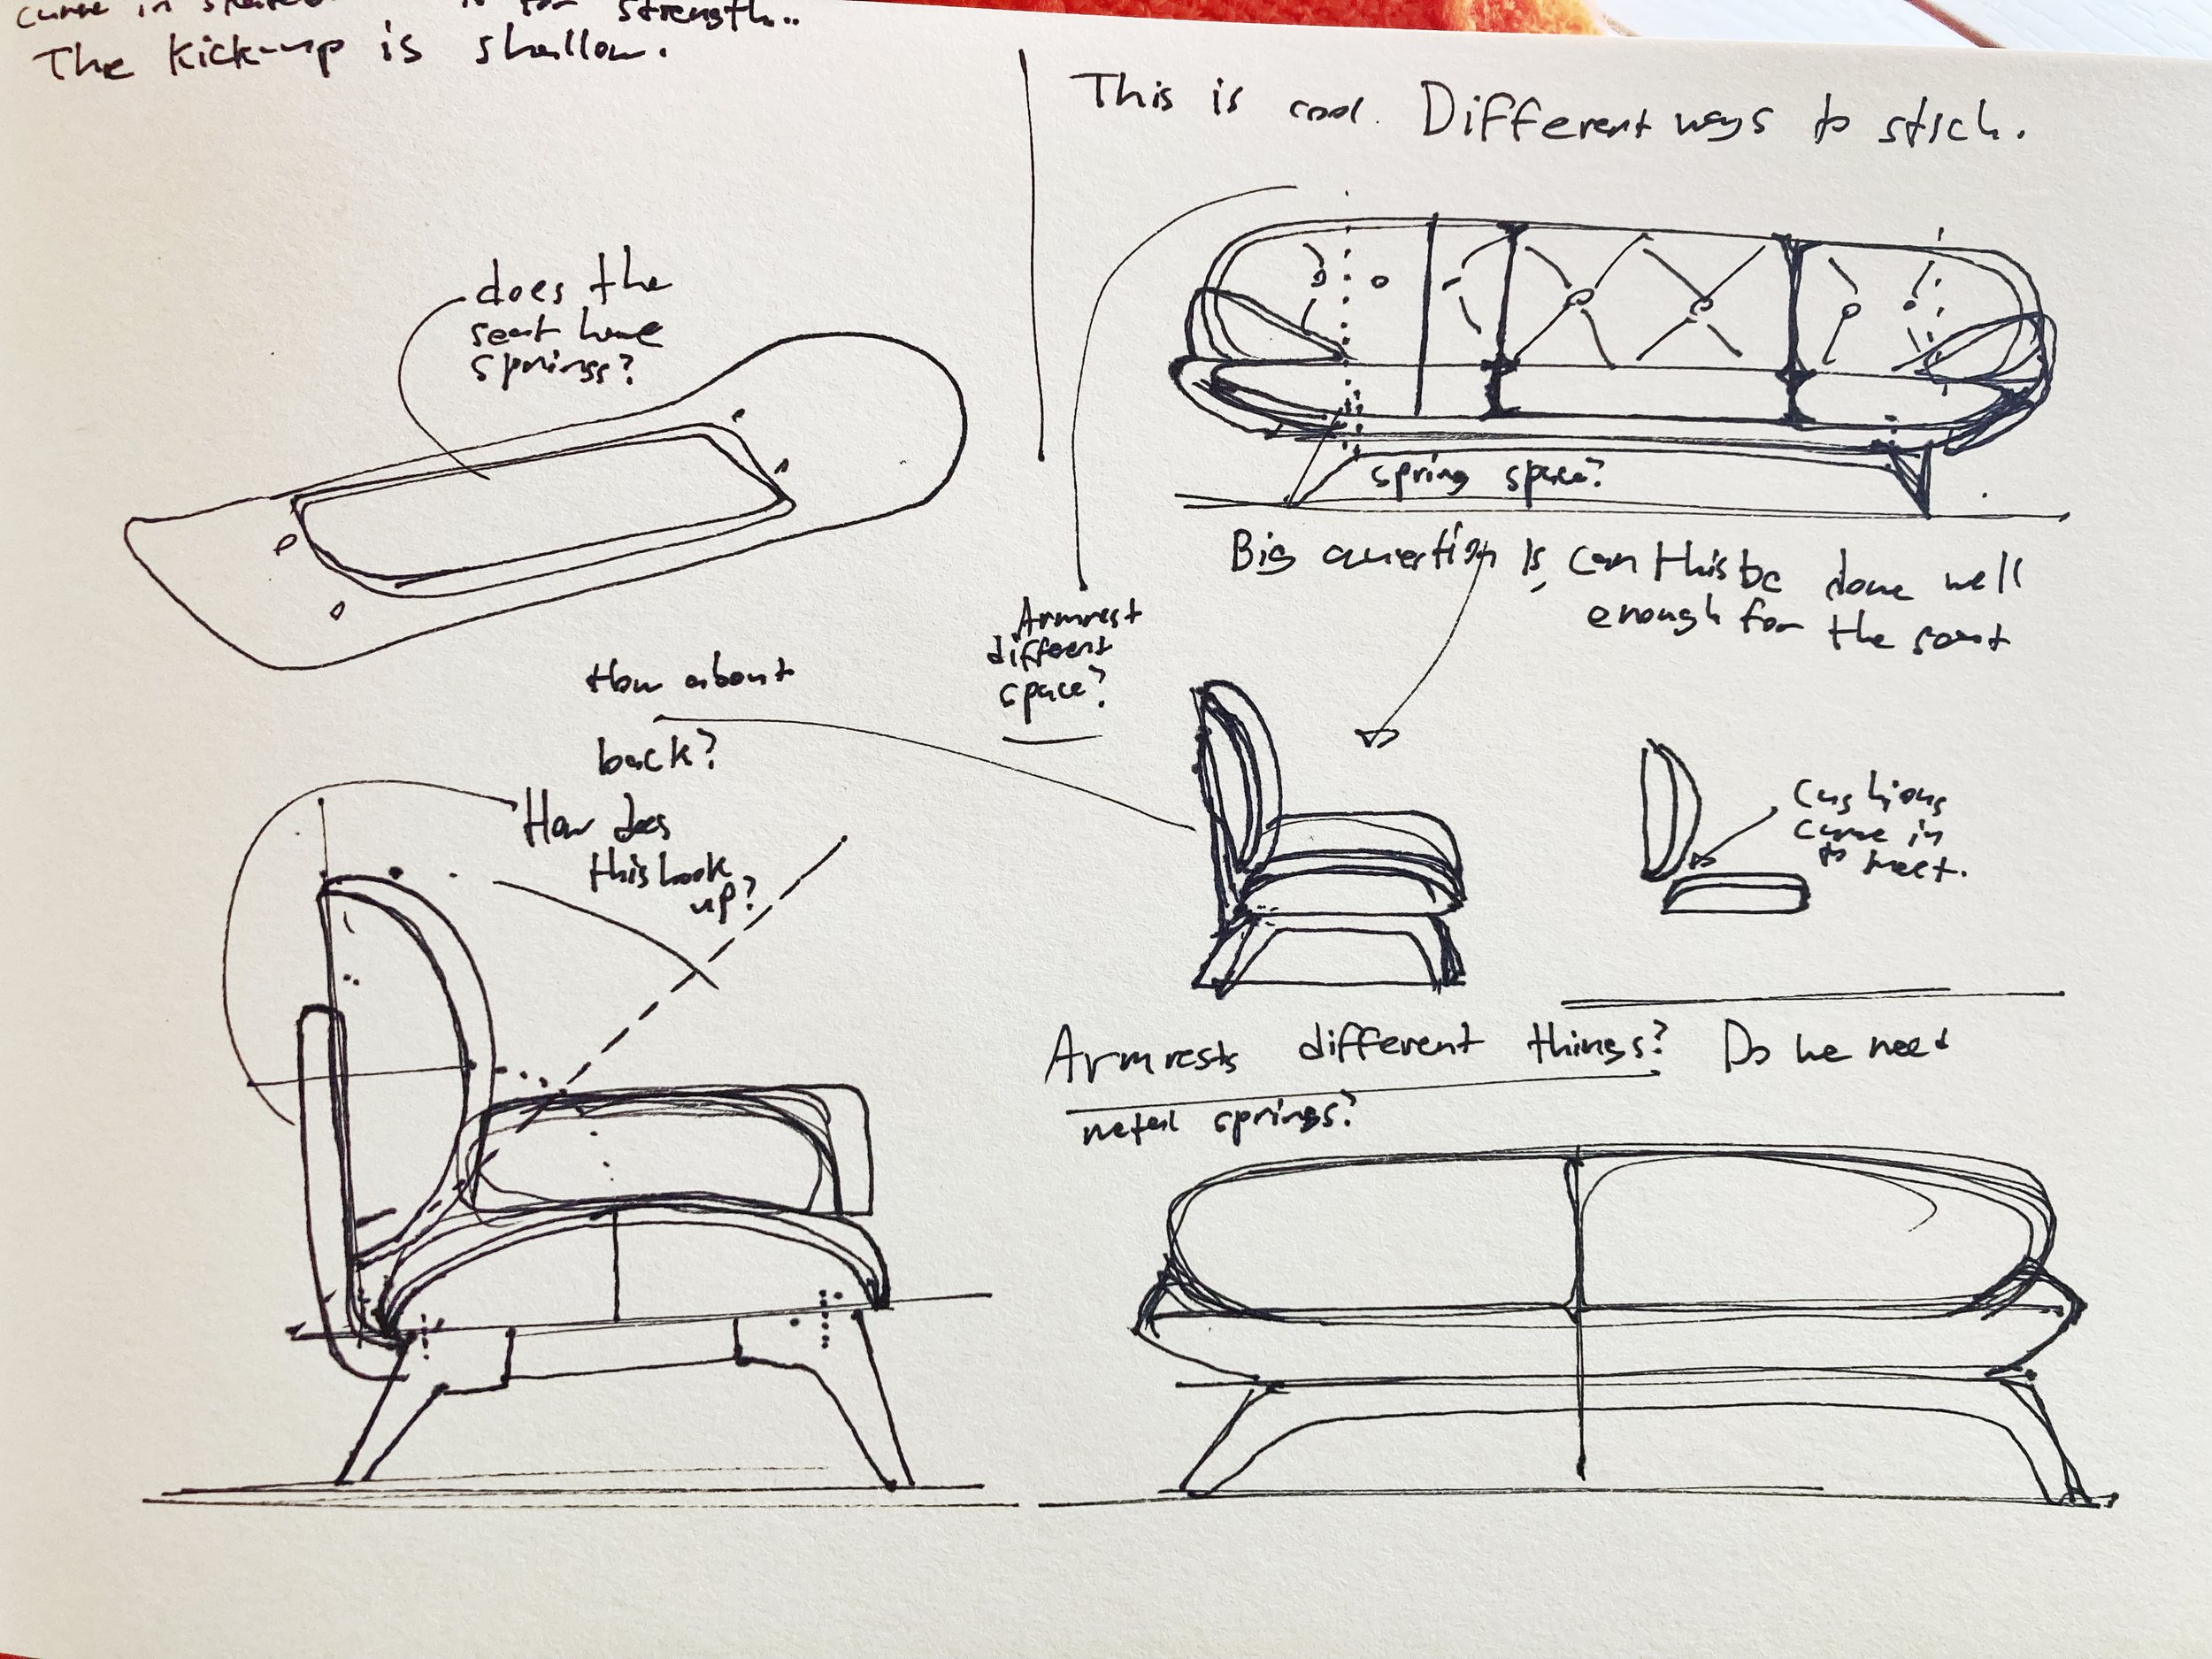 curve in for strength..
The kick-up is shallow.
does the
seat have
springs?
This is cool. Different ways to stich.
spring space?
Big question is, can this be done well
enough for the seat
Armrest
different
space?
How about
back?
How does
this hook
up?
cushions
curve in
to meet.
Armrests different things? Do we need
metal springs?